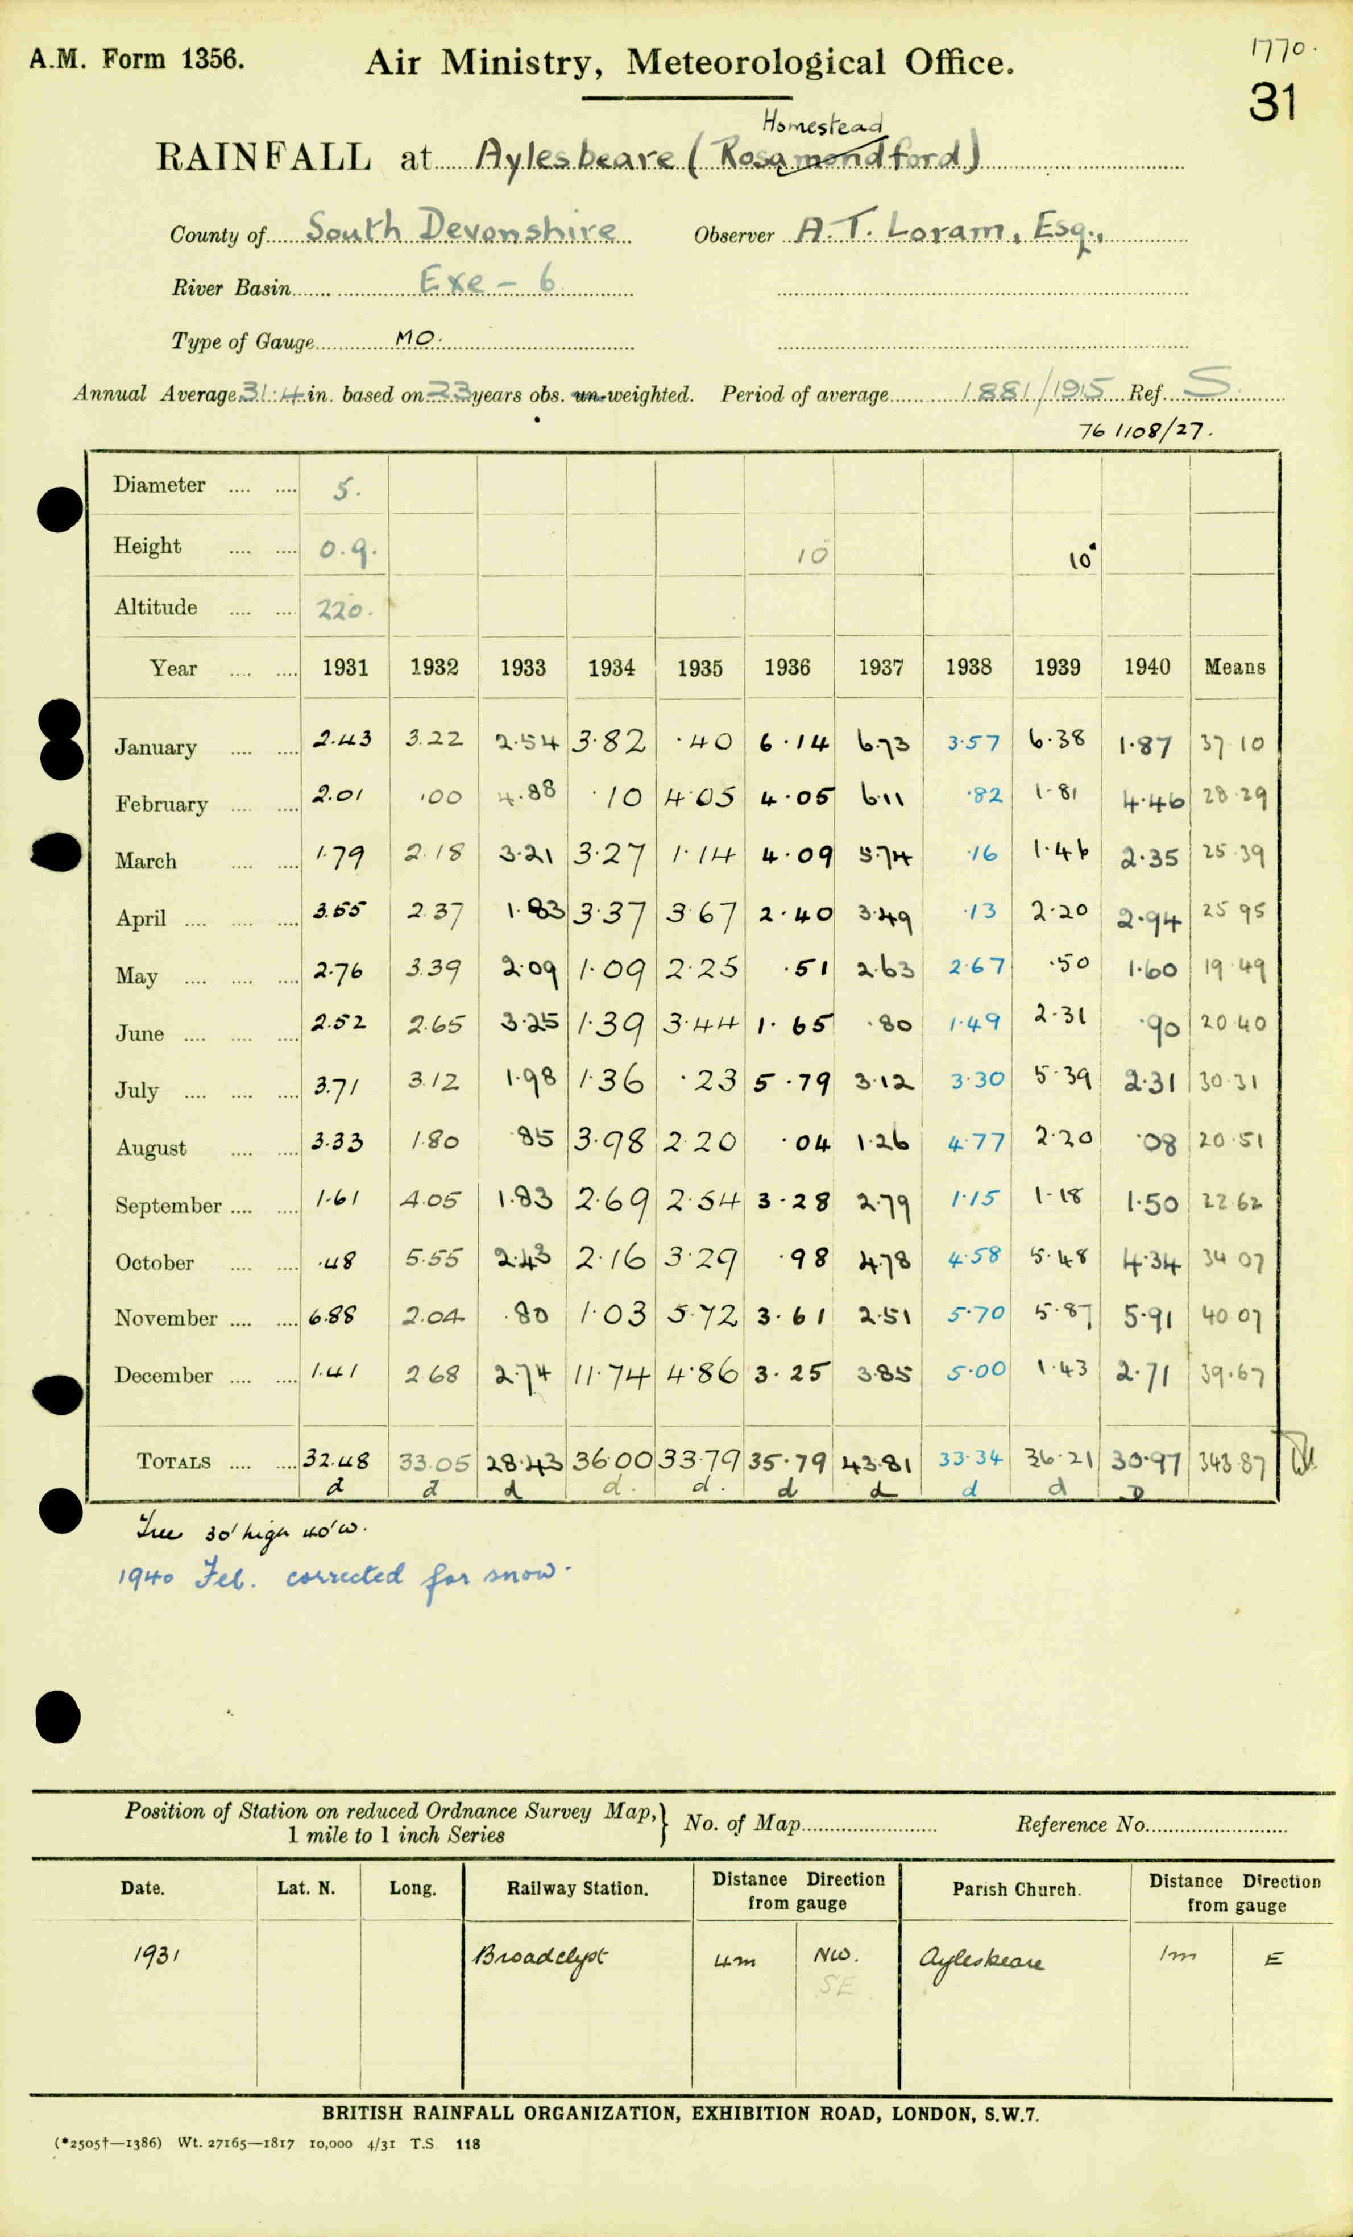 A.M. Form 1356.
Air Ministry, Meteorological Office.
1770.
31
Homestead
RAINFALL at Aylesbeare (Rosamondford)
County of South Devonshire Observer A.T. Loram, Esq.,
River Basin Exe - 6
Type of Gauge MO.
Annual Average 31.4 in. based on 23 years obs. un-weighted. Period of average 1881/1915 Ref. S.
76 1108/27.
Diameter 5.
Height 0.9. 10 10"
Altitude 220.
Year 1931 1932 1933 1934 1935 1936 1937 1938 1939 1940 Means
January 2.43 3.22 2.54 3.82 .40 6.14 6.73 3.57 6.38 1.87 37.10
February 2.01 .00 4.88 .10 4.05 4.05 6.11 .82 1.81 4.46 28.29
March 1.79 2.18 3.21 3.27 1.14 4.09 5.74 .16 1.46 2.35 25.39
April 3.55 2.37 1.83 3.37 3.67 2.40 3.49 .13 2.20 2.94 25.95
May 2.76 3.39 2.09 1.09 2.25 .51 2.63 2.67 .50 1.60 19.49
June 2.52 2.65 3.25 1.39 3.44 1.65 .80 1.49 2.31 .90 20.40
July 3.71 3.12 1.98 1.36 .23 5.79 3.12 3.30 5.39 2.31 30.31
August 3.33 1.80 .85 3.98 2.20 .04 1.26 4.77 2.20 .08 20.51
September 1.61 4.05 1.83 2.69 2.54 3.28 2.79 1.15 1.18 1.50 22.62
October .48 5.55 2.43 2.16 3.29 .98 4.78 4.58 5.48 4.34 34.07
November 6.88 2.04 .80 1.03 5.72 3.61 2.51 5.70 5.87 5.91 40.07
December 1.41 2.68 2.74 11.74 4.86 3.25 3.85 5.00 1.43 2.71 39.67
TOTALS 32.48 33.05 28.43 36.00 33.79 35.79 43.81 33.34 36.21 30.97 343.87
d d d d. d. d d d d D
Tree 30' high 40' W.
1940 Feb. corrected for snow.
Position of Station on reduced Ordnance Survey Map,} No. of Map Reference No.
1 mile to 1 inch Series
Date. Lat. N. Long. Railway Station. Distance Direction from gauge Parish Church. Distance Direction from gauge
1931 Broadclyst 4m NW. Aylesbeare 1m E
SE
BRITISH RAINFALL ORGANIZATION, EXHIBITION ROAD, LONDON, S.W.7.
(*2505†—1386) Wt. 27165—1817 10,000 4/31 T.S 118